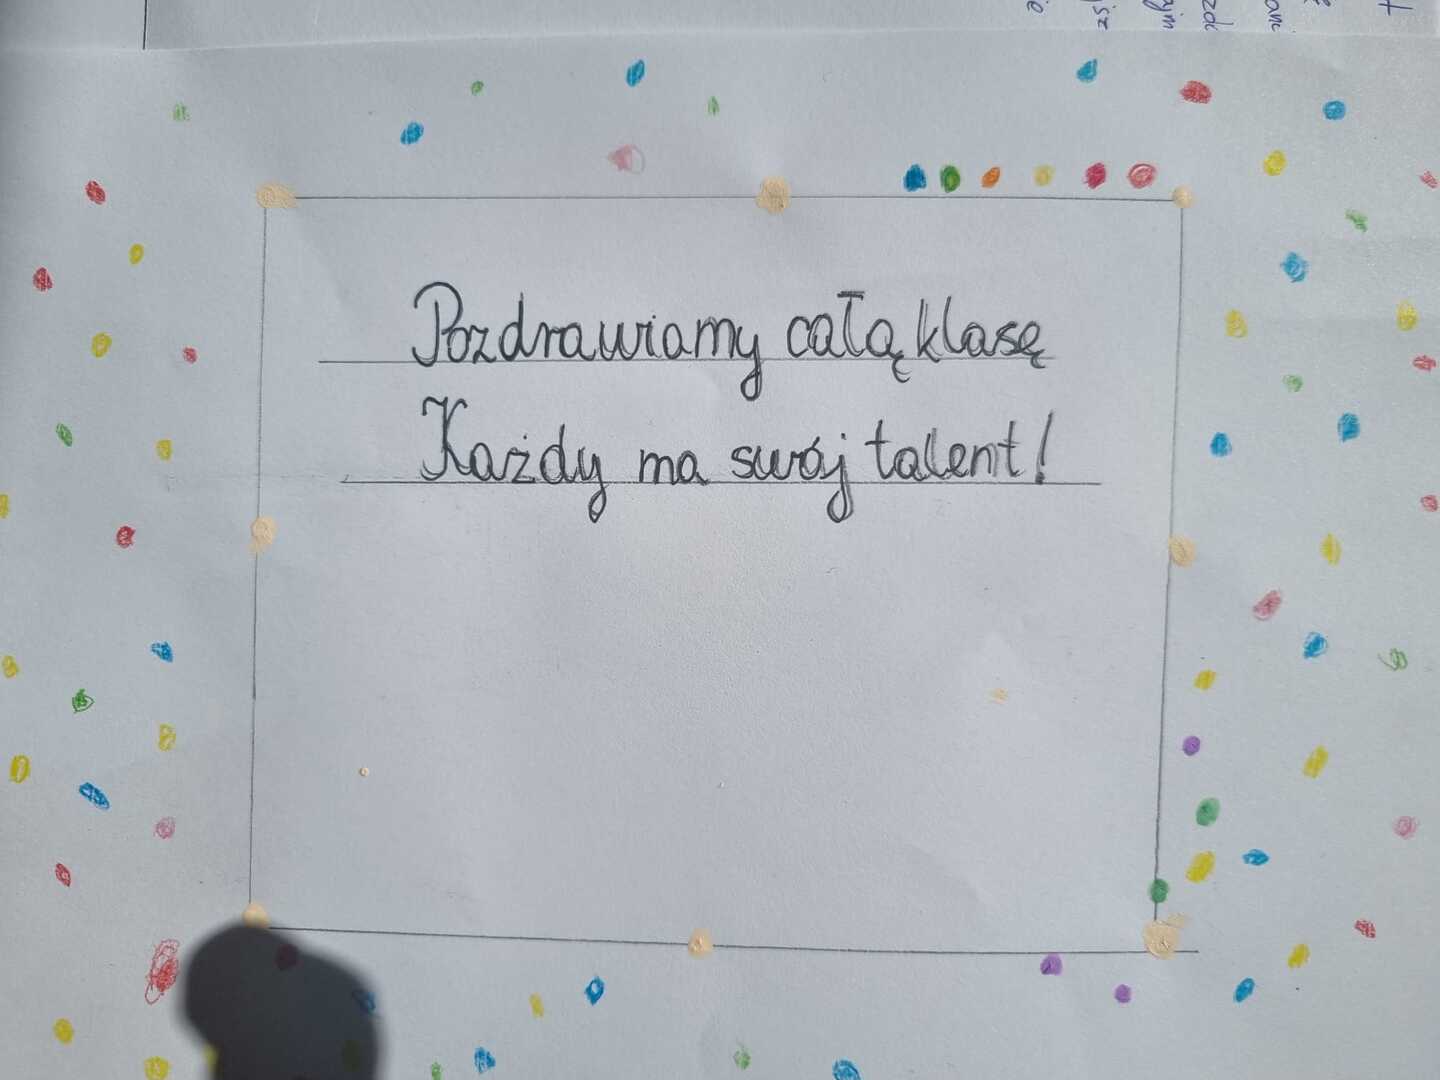 Pozdrawiamy całą klasę
Każdy ma swój talent!